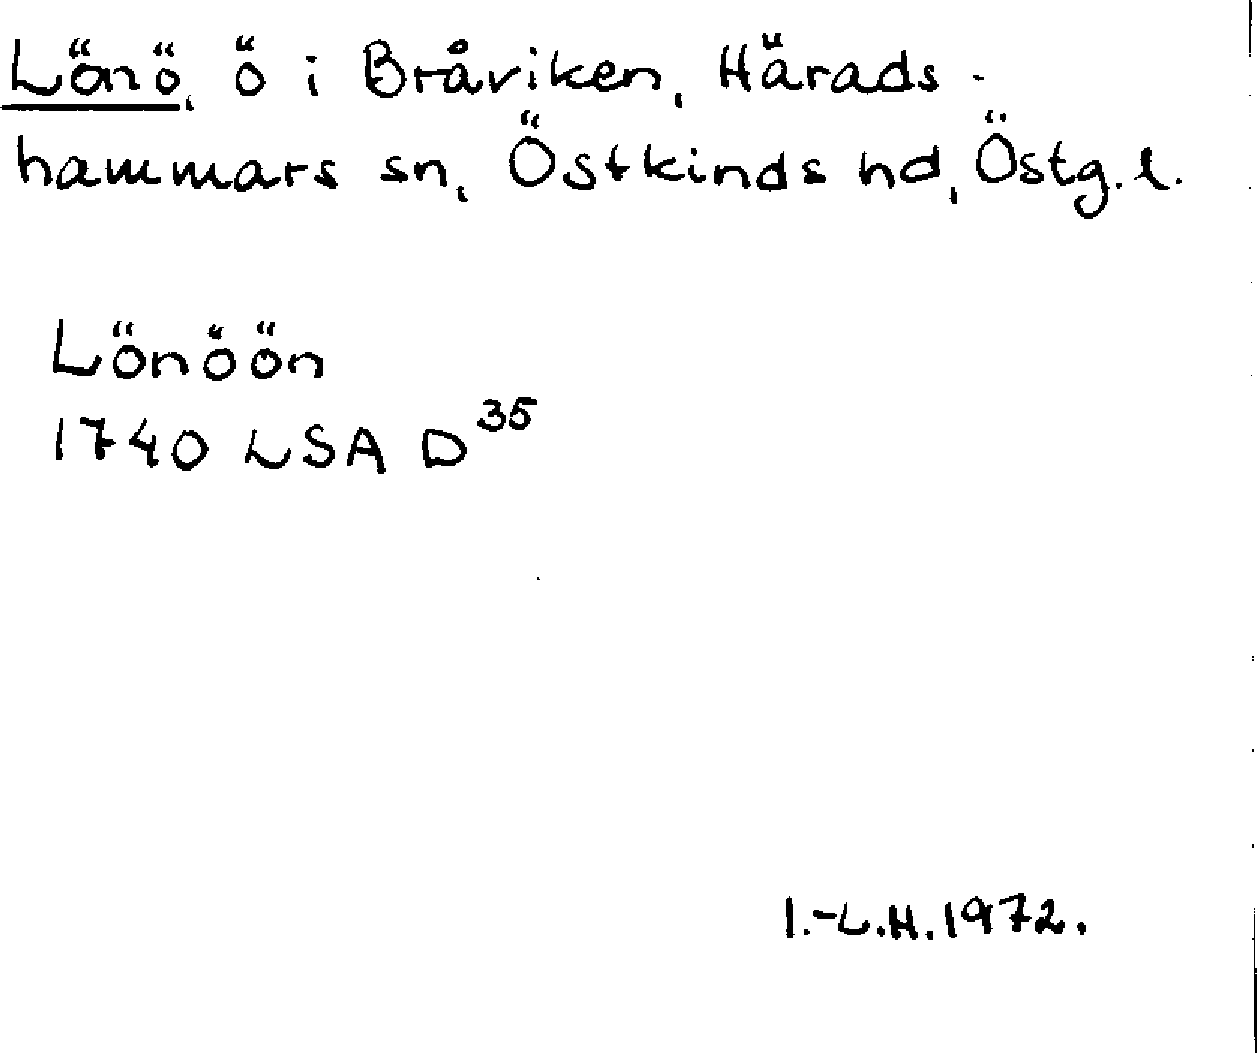 Lönö, ö i Bråviken, Härads-
hammars sn, Östkinds hd, Östg.l.
Lönöön
1740 LSA D³⁵
I.-L.H.1972.